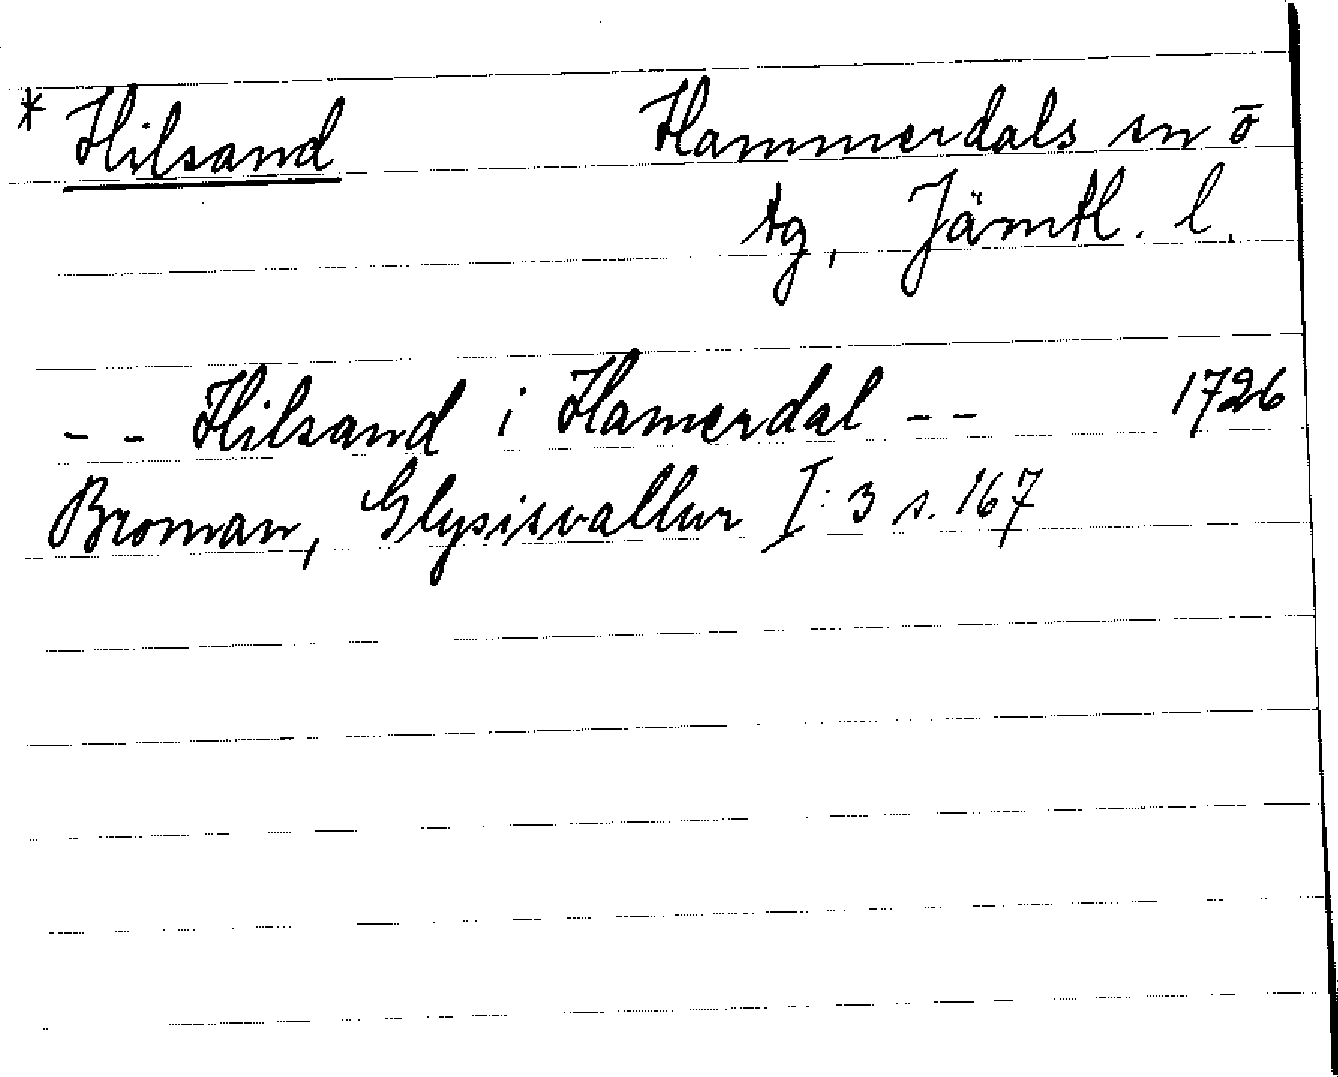 * Hilsand Hammerdals sn ō
tg, Jämtl. l.
-- Hilsand i Hamerdal -- 1726
Broman, Glysisvallur I:3 s. 167